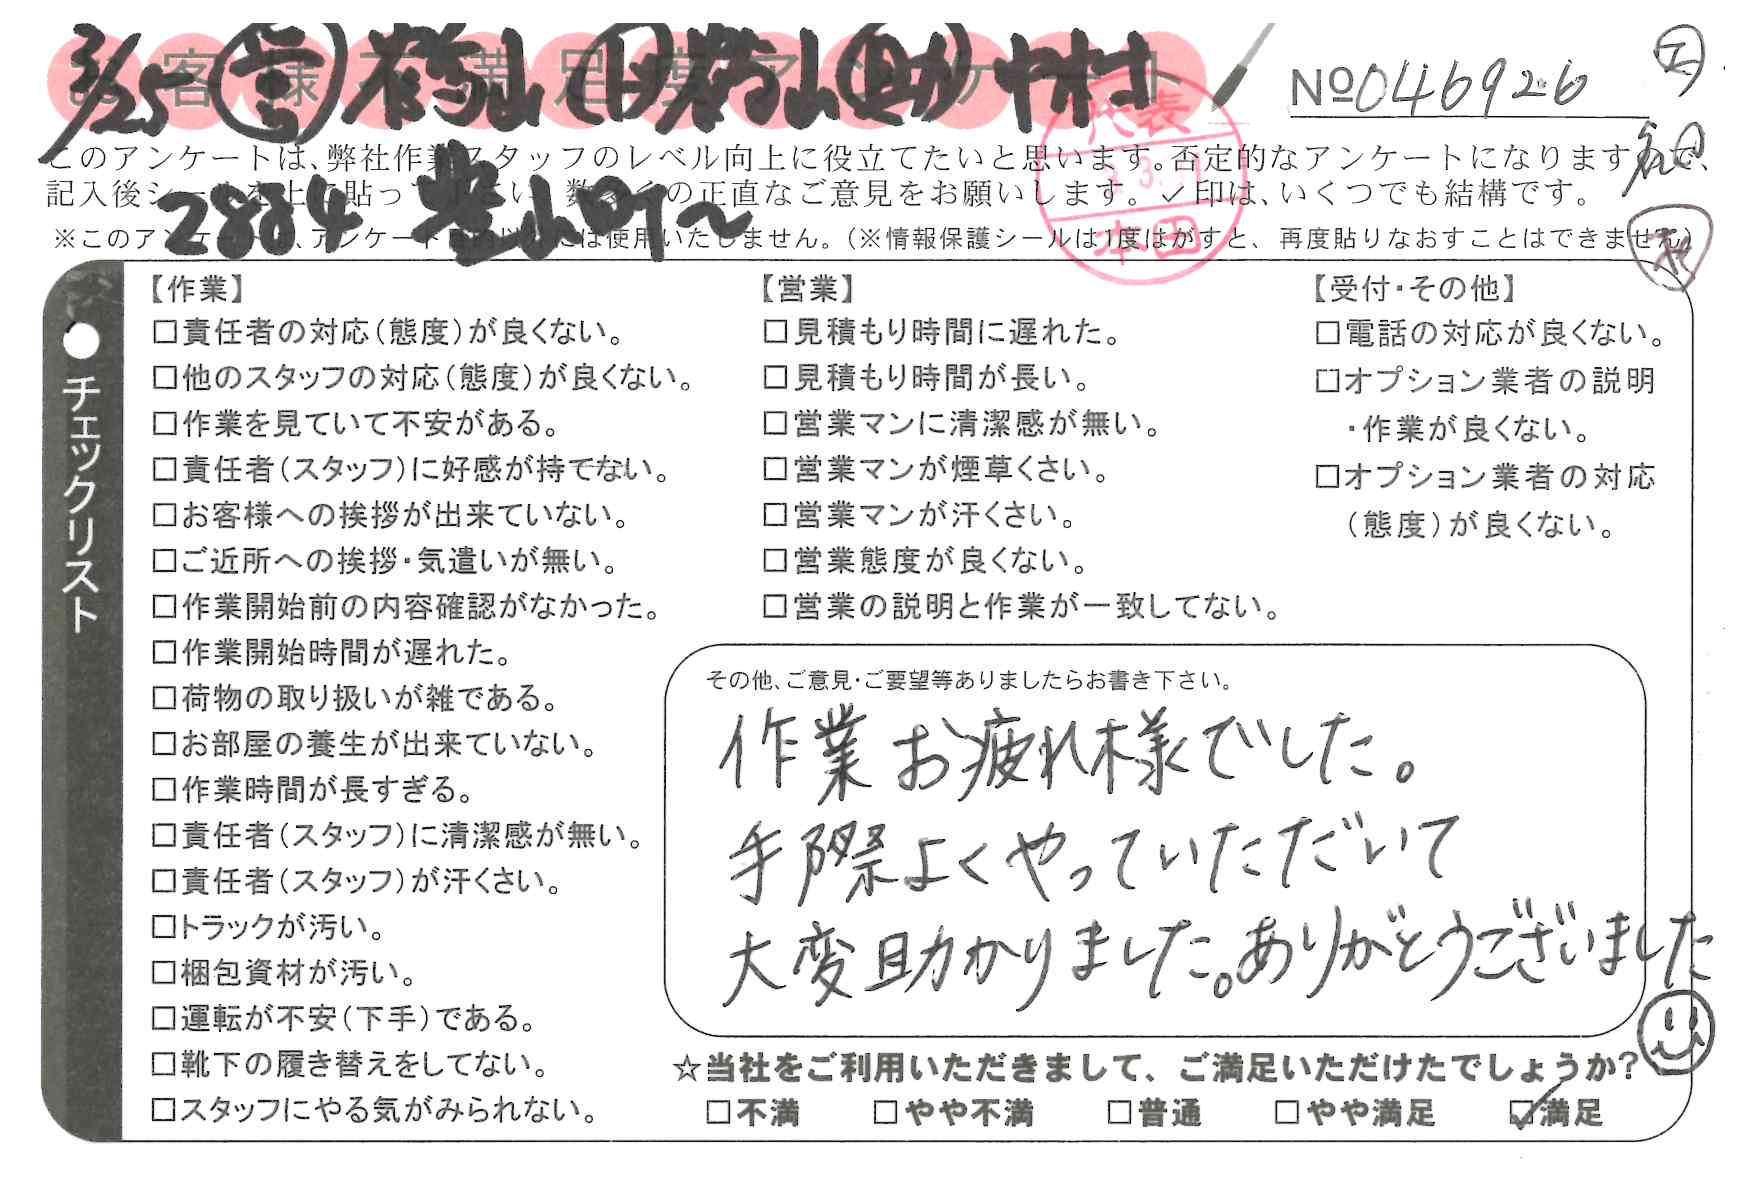 お客様不満足度アンケート
3/25
中村
№046926
代表
本田
このアンケートは、弊社作業スタッフのレベル向上に役立てたいと思います。否定的なアンケートになりますので、
記入後シールを上に貼って下さい。数多くの正直なご意見をお願いします。✓印は、いくつでも結構です。
2884
※このアンケートは、アンケート目的以外には使用いたしません。(※情報保護シールは1度はがすと、再度貼りなおすことはできません)
チェックリスト
【作業】
□責任者の対応(態度)が良くない。
□他のスタッフの対応(態度)が良くない。
□作業を見ていて不安がある。
□責任者(スタッフ)に好感が持てない。
□お客様への挨拶が出来ていない。
□ご近所への挨拶・気遣いが無い。
□作業開始前の内容確認がなかった。
□作業開始時間が遅れた。
□荷物の取り扱いが雑である。
□お部屋の養生が出来ていない。
□作業時間が長すぎる。
□責任者(スタッフ)に清潔感が無い。
□責任者(スタッフ)が汗くさい。
□トラックが汚い。
□梱包資材が汚い。
□運転が不安(下手)である。
□靴下の履き替えをしてない。
□スタッフにやる気がみられない。
【営業】
□見積もり時間に遅れた。
□見積もり時間が長い。
□営業マンに清潔感が無い。
□営業マンが煙草くさい。
□営業マンが汗くさい。
□営業態度が良くない。
□営業の説明と作業が一致してない。
【受付・その他】
□電話の対応が良くない。
□オプション業者の説明
・作業が良くない。
□オプション業者の対応
(態度)が良くない。
その他、ご意見・ご要望等ありましたらお書き下さい。
作業お疲れ様でした。
手際よくやっていただいて
大変助かりました。ありがとうございました
☆当社をご利用いただきまして、ご満足いただけたでしょうか?
□不満 □やや不満 □普通 □やや満足 ☑満足